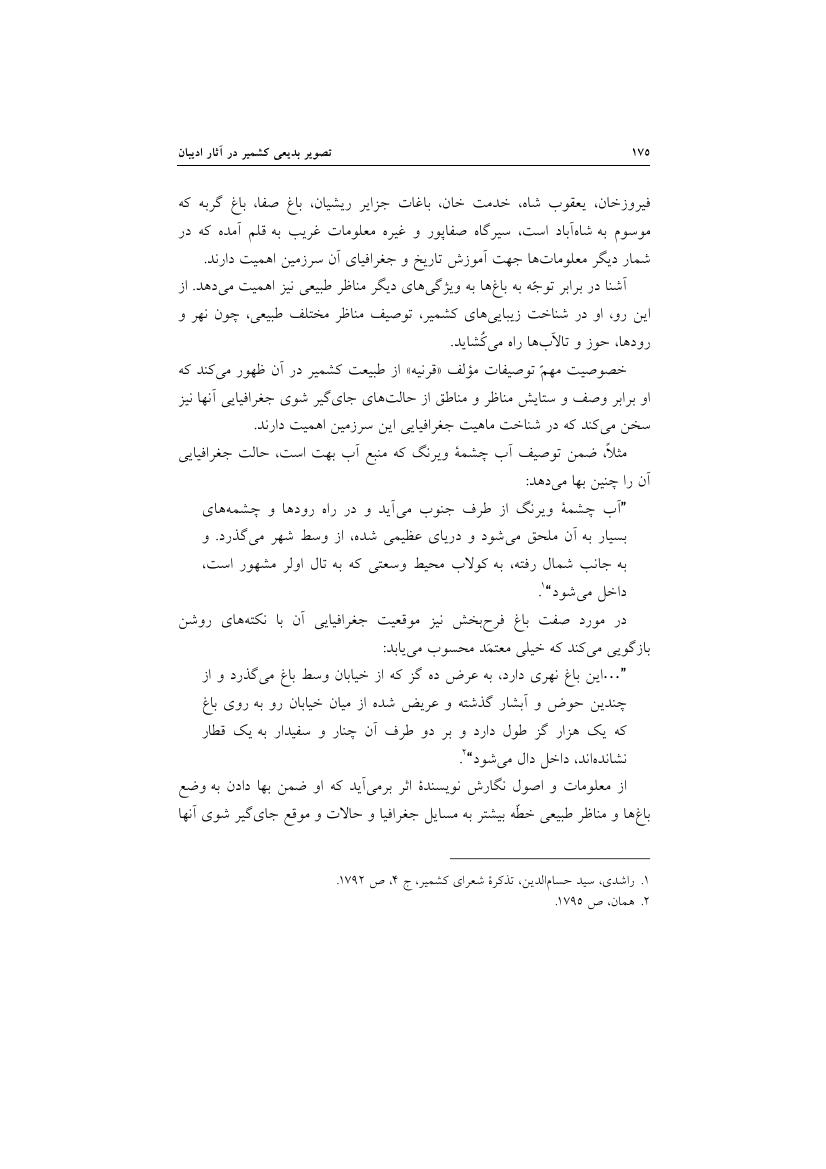 ۱۷۵ تصویر بدیعی کشمیر در آثار ادیبان
فیروزخان، یعقوب شاه، خدمت خان، باغات جزایر ریشیان، باغ صفا، باغ گربه که
موسوم به شاه‌آباد است، سیرگاه صفاپور و غیره معلومات غریب به قلم آمده که در
شمار دیگر معلومات‌ها جهت آموزش تاریخ و جغرافیای آن سرزمین اهمیت دارند.
آشنا در برابر توجّه به باغ‌ها به ویژگی‌های دیگر مناظر طبیعی نیز اهمیت می‌دهد. از
این رو، او در شناخت زیبایی‌های کشمیر، توصیف مناظر مختلف طبیعی، چون نهر و
رودها، حوز و تالاّب‌ها راه می‌کُشاید.
خصوصیت مهمّ توصیفات مؤلف «قرنیه» از طبیعت کشمیر در آن ظهور می‌کند که
او برابر وصف و ستایش مناظر و مناطق از حالت‌های جای‌گیر شوی جغرافیایی آنها نیز
سخن می‌کند که در شناخت ماهیت جغرافیایی این سرزمین اهمیت دارند.
مثلاً، ضمن توصیف آب چشمۀ ویرنگ که منبع آب بهت است، حالت جغرافیایی
آن را چنین بها می‌دهد:
”آب چشمۀ ویرنگ از طرف جنوب می‌آید و در راه رودها و چشمه‌های
بسیار به آن ملحق می‌شود و دریای عظیمی شده، از وسط شهر می‌گذرد. و
به جانب شمال رفته، به کولاب محیط وسعتی که به تال اولر مشهور است،
داخل می‌شود“۱.
در مورد صفت باغ فرح‌بخش نیز موقعیت جغرافیایی آن با نکته‌های روشن
بازگویی می‌کند که خیلی معتمَد محسوب می‌یابد:
”...این باغ نهری دارد، به عرض ده گز که از خیابان وسط باغ می‌گذرد و از
چندین حوض و آبشار گذشته و عریض شده از میان خیابان رو به روی باغ
که یک هزار گز طول دارد و بر دو طرف آن چنار و سفیدار به یک قطار
نشانده‌اند، داخل دال می‌شود“۲.
از معلومات و اصول نگارش نویسندۀ اثر برمی‌آید که او ضمن بها دادن به وضع
باغ‌ها و مناظر طبیعی خطّه بیشتر به مسایل جغرافیا و حالات و موقع جای‌گیر شوی آنها
۱. راشدی، سید حسام‌الدین، تذکرۀ شعرای کشمیر، ج ۴، ص ۱۷۹۲.
۲. همان، ص ۱۷۹۵.